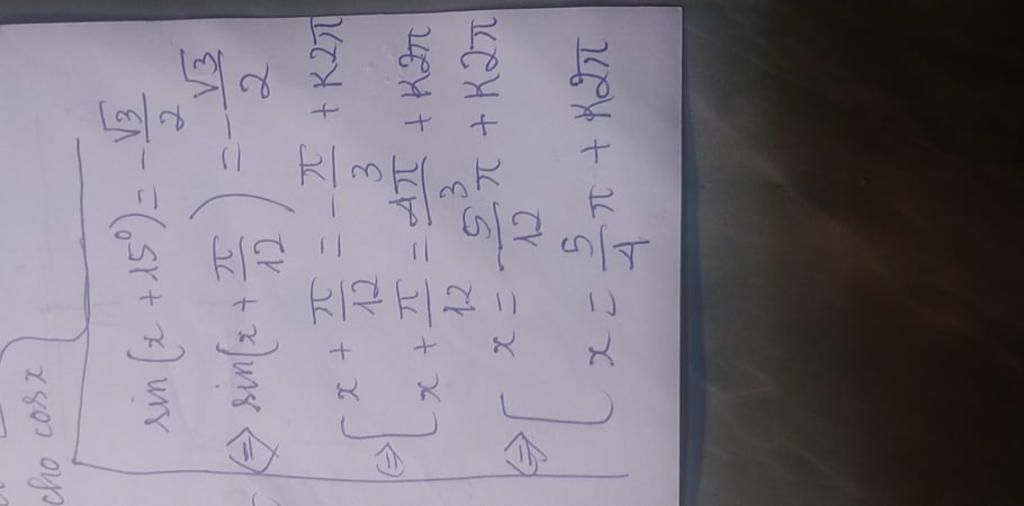 cho cosx
sin(x + 15⁰) = -√3/2
(=) sin(x + π/12) = -√3/2
(=) [ x + π/12 = -π/3 + K2π
x + π/12 = 4π/3 + K2π
(=) [ x = -5/12 π + K2π
x = 5/4 π + K2π